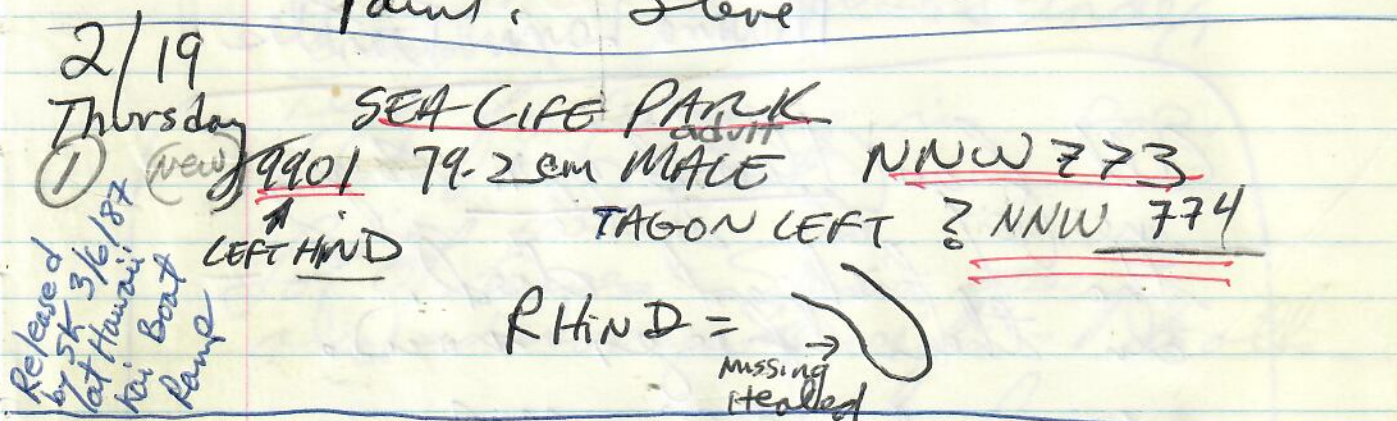 Paint. Steve
2/19
Thursday
SEA LIFE PARK
① (new) 9901 79.2 cm adult MALE NNW 773
LEFT HIND
TAG ON LEFT ? NNW 774
R HIND =
Missing
Healed
Released
by SK 3/6/87
at Hawaii
Kai Boat
Ramp